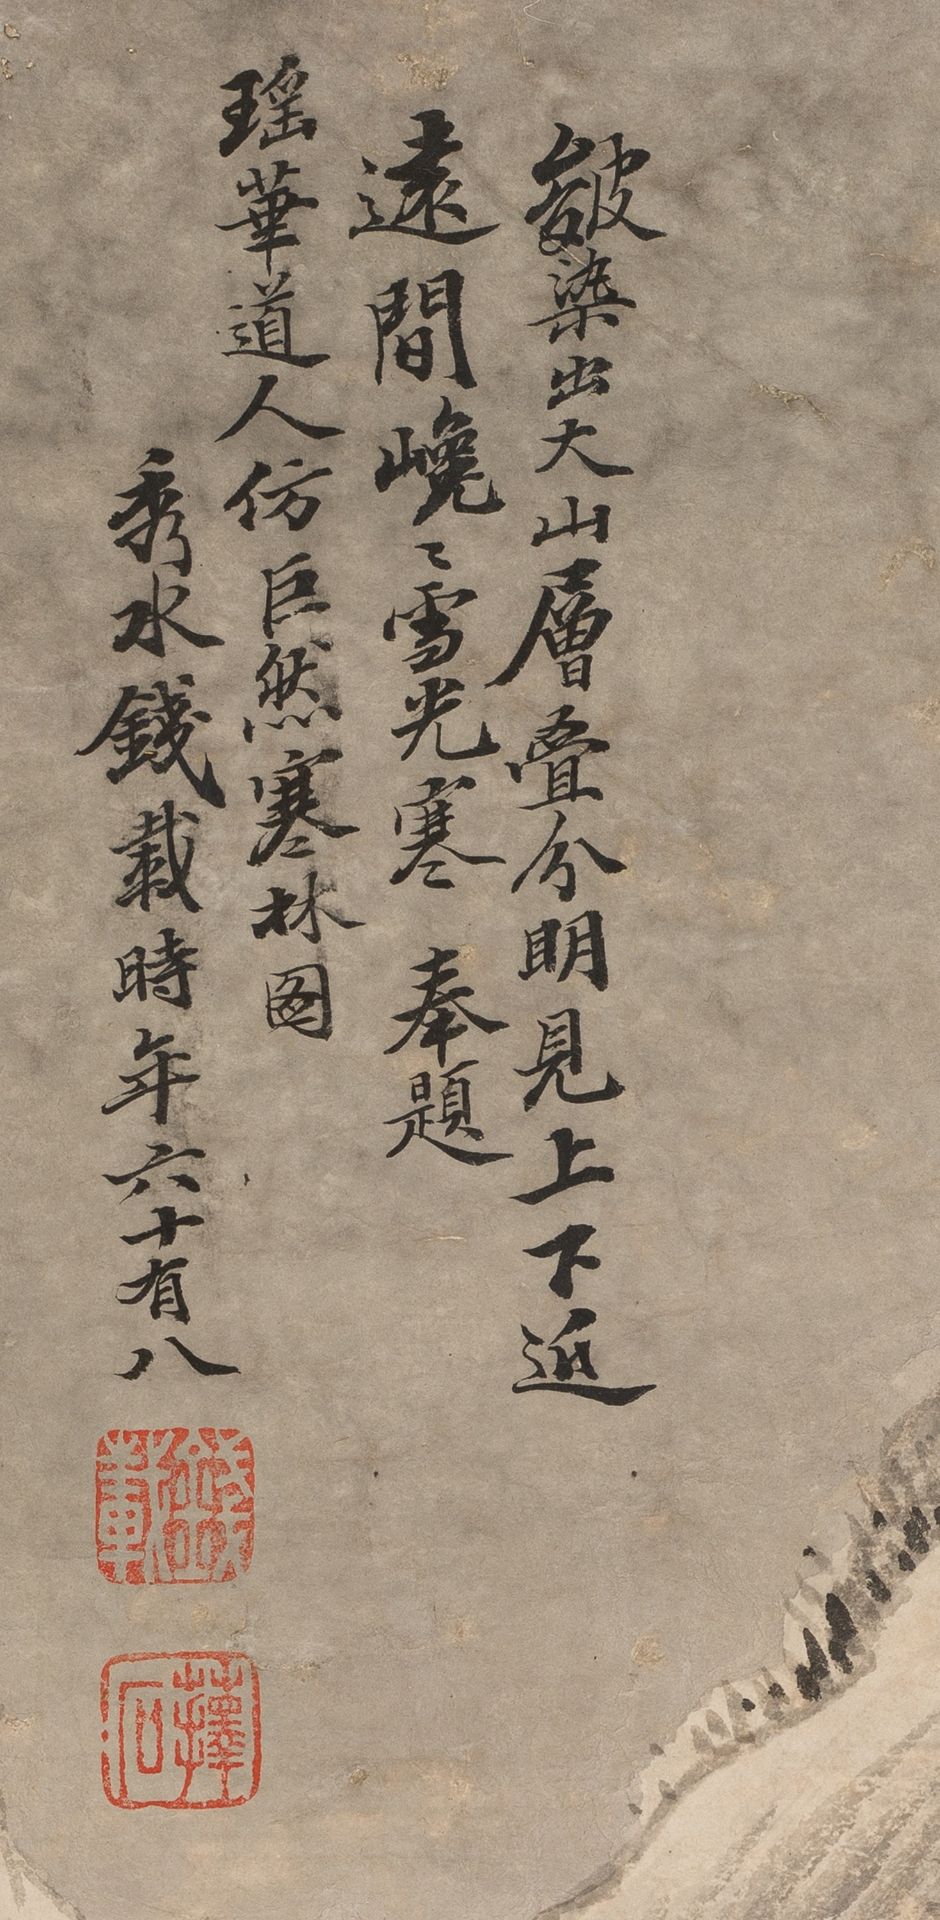 皴染出大山層疊分明見上下近
遠間巉〻雪光寒 奉題
瑶華道人仿巨然寒林图
秀水錢載時年六十有八
錢載
蘀石